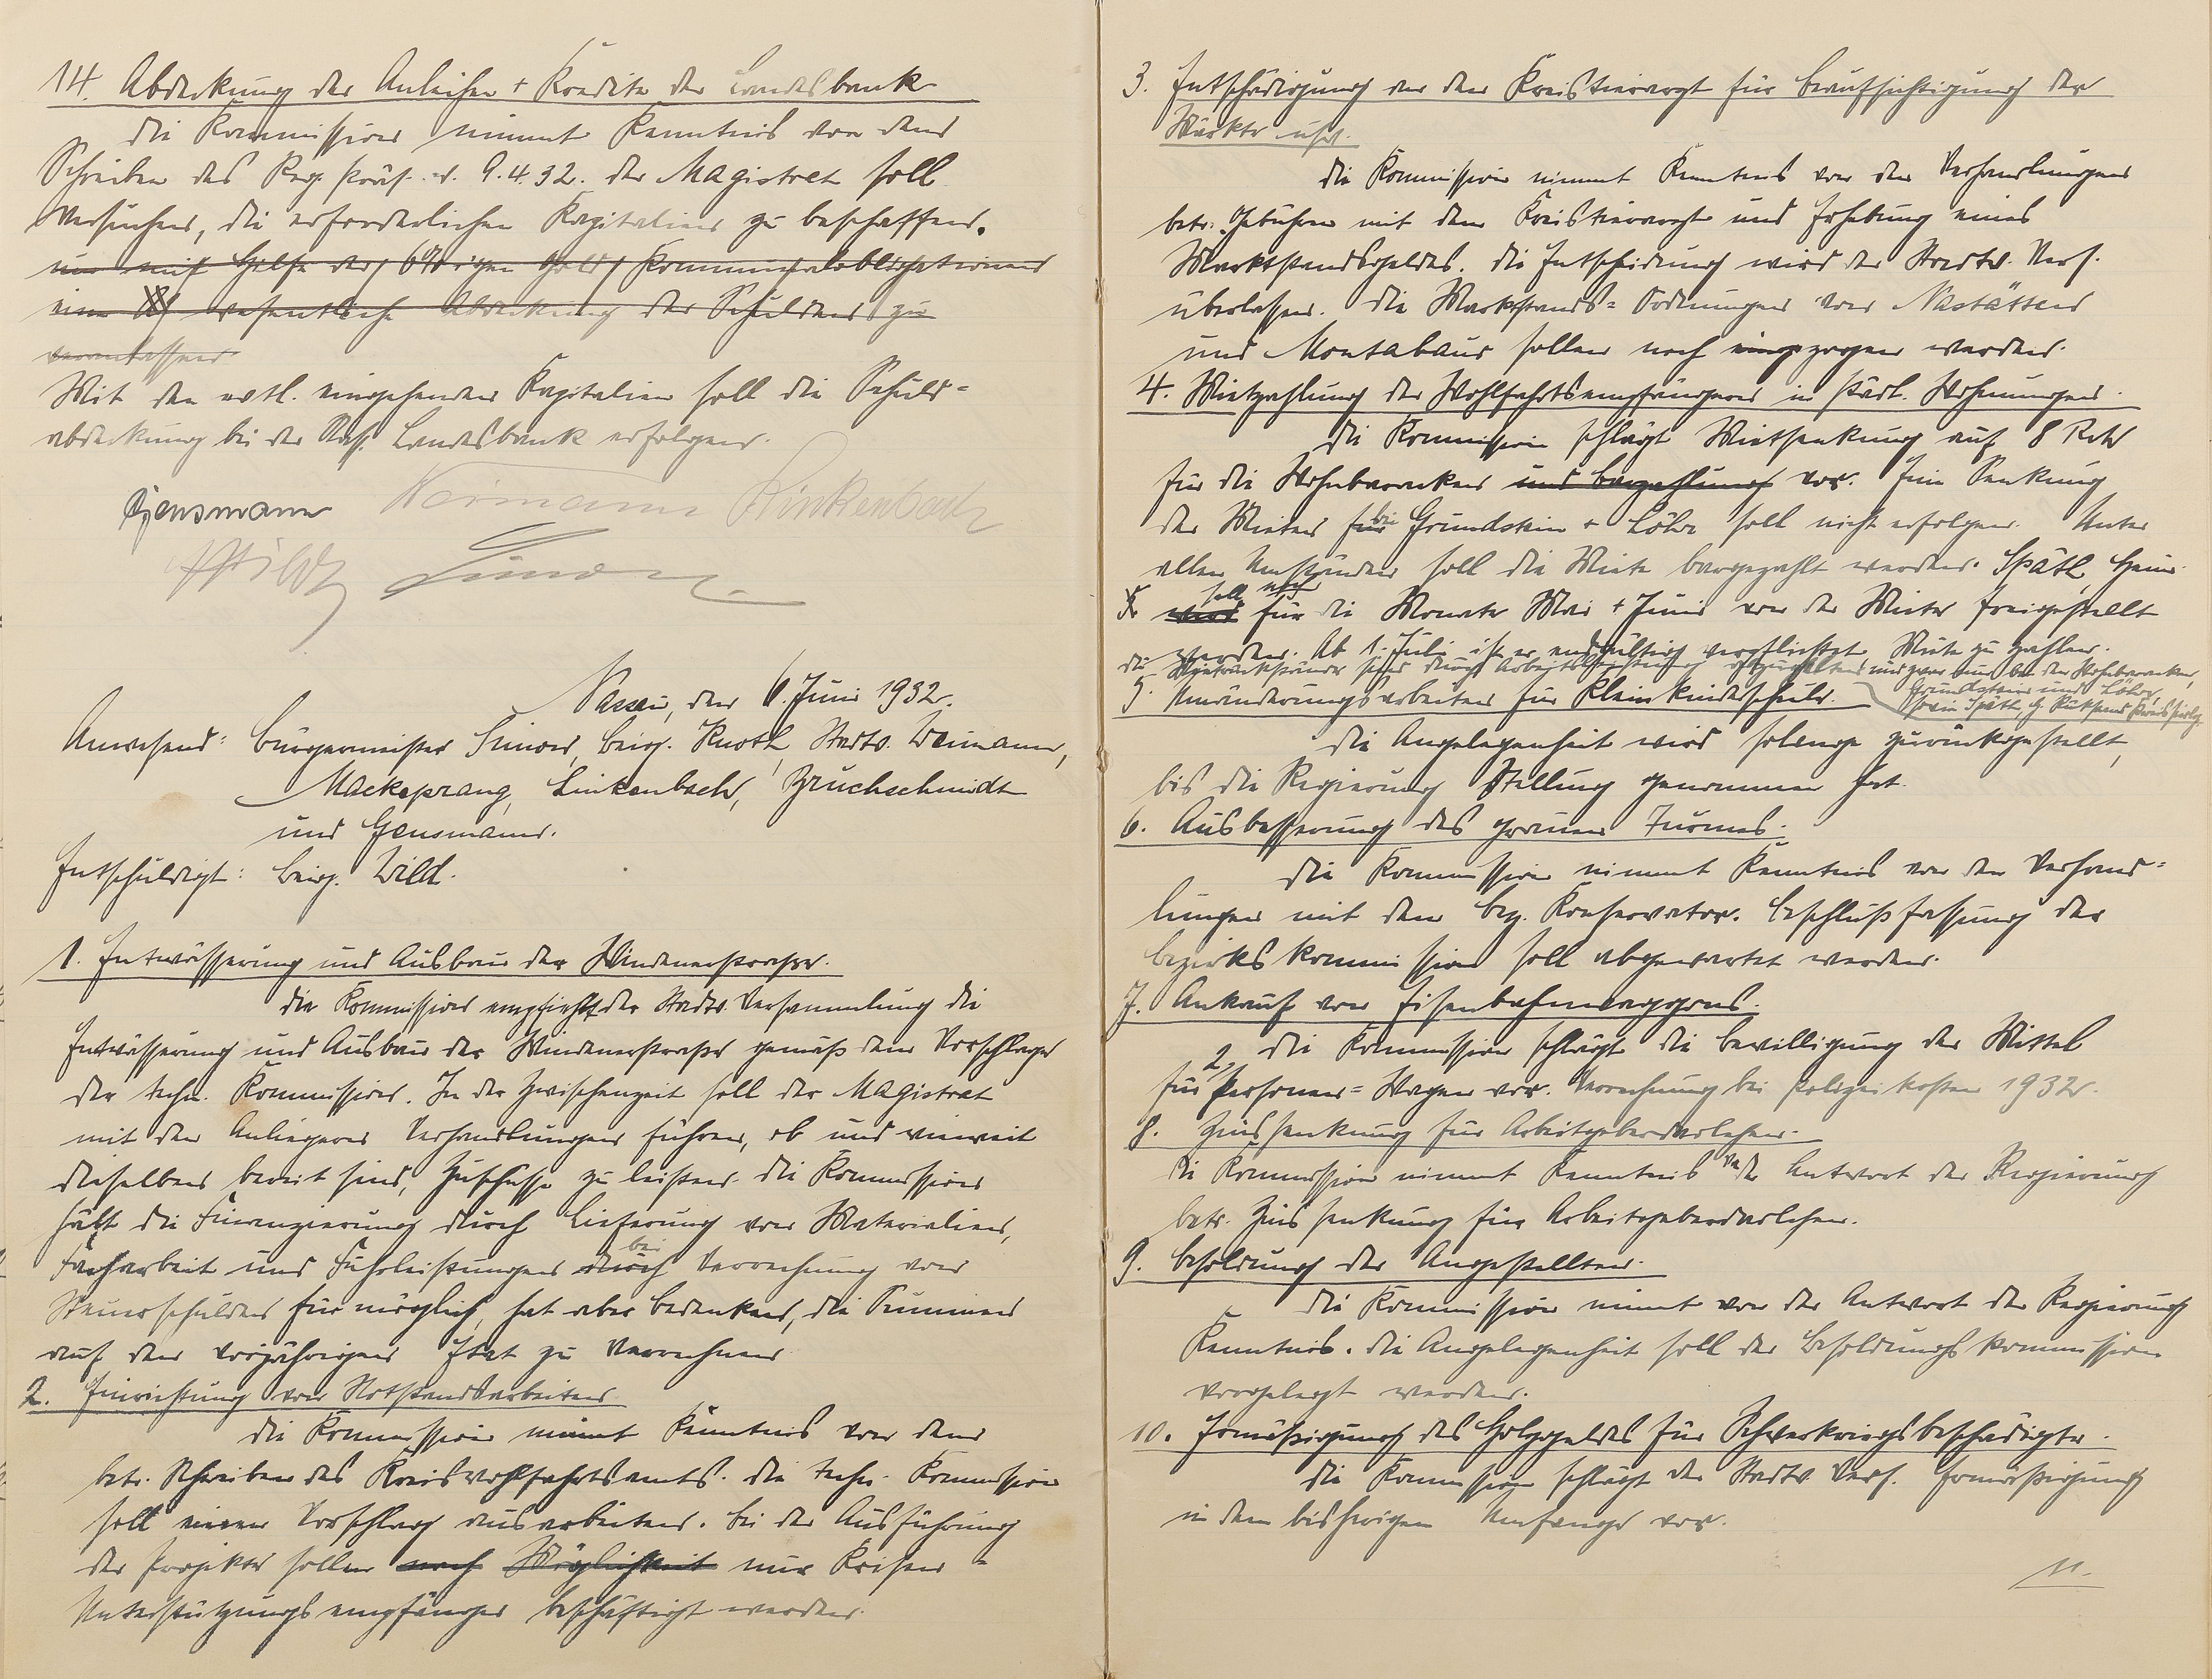 14. Abdeckung der Anleihen + Kredite der Landesbank
Die Kommission nimmt Kenntnis von dem
Schreiben des Reg. Präs. v. 9.4.32. Der Magistrat soll
versuchen, die erforderlichen Kapitalien zu beschaffen.
um mit Hilfe der 6%igen Gold Kommunalobligationen
eine wesentliche Abdeckung der Schulden zu
veranlassen
Mit den evtl. eingehenden Kapitalien soll die Schuld-
abdeckung bei der Nass. Landesbank erfolgen.
Gensmann Weimann Linkenbach
Wild Simon
Nassau, den 6. Juni 1932.
Anwesend: Bürgermeister Simon, Beig. Knoth, Stadtv. Weimann,
Mackeprang, Linkenbach, Bruchschmidt
und Gensmann.
Entschuldigt: Beig. Wild.
1. Entwässerung und Ausbau der Windenerstrasse.
Die Kommission empfiehlt der Stadtv. Versammlung die
Entwässerung und Ausbau der Windenerstrasse gemäß dem Vorschlage
der techn. Kommission. In der Zwischenzeit soll der Magistrat
mit den Anliegern Verhandlungen führen, ob und wieweit
dieselben bereit sind, Zuschüsse zu leisten. Die Kommission
hält die Finanzierung durch Lieferung von Materialien,
Facharbeit und Fuhrleistungen durch bei Verrechnung von
Steuerschulden für möglich, hat aber Bedenken, die Summen
auf den vorjährigen Etat zu verrechnen
2. Einrichtung von Notstandsarbeiten
Die Kommission nimmt Kenntnis von dem
betr. Schreiben des Kreiswohlfahrtsamts. Die techn. Kommission
soll einen Vorschlag ausarbeiten. Bei der Ausführung
der Projekte sollen nach Möglichkeit nur Krisen-
Unterstützungsempfänger beschäftigt werden.
3. Entschädigung an den Kreistierarzt für Beaufsichtigung der
Märkte usw.
Die Kommission nimmt Kenntnis von den Verhandlungen
betr. Gebühren mit dem Kreistierarzte und Erhebung eines
Marktstandsgeldes. Die Entscheidung wird der Stadtv. Vers.
überlassen. Die Marktstands-Ordnungen von Nastätten
und Montabaur sollen noch eingezogen werden.
4. Mietzahlung der Wohlfahrtsempfänger in städt. Wohnungen.
Die Kommission schlägt Mietsenkung auf 8 RM
für die Wohnbaracken und Barzahlung vor. Eine Senkung
der Mieten für bei Grundstein + Löhr soll nicht erfolgen. Unter
allen Umständen soll die Miete bargezahlt werden. Späth, Heinr.
wird soll noch für die Monate Mai + Juni von der Miete freigestellt
werden. Ab 1. Juli ist er endgültig verpflichtet Miete zu zahlen.
Die Mietrückstände sind durch Arbeitsleistung abzugelten und zwar nun bei den Wohnbaracken,
Grundstein und Löhr,
5. Umänderungsarbeiten für Kleinkinderschule.
Die Angelegenheit wird solange zurückgestellt,
bis die Regierung Stellung genommen hat.
6. Ausbesserung des grauen Turmes.
Die Kommission nimmt Kenntnis von den Verhand-
lungen mit dem Bez. Konservator. Beschlußfassung der
Bezirkskommission soll abgewartet werden.
7. Ankauf von Eisenbahnwaggons.
Die Kommission schlägt die Bewilligung der Mittel
für 2 Personen-Wagen vor. Verrechnung bei Polizeikosten 1932.
8. Zinssenkung für Arbeitgeberdarlehen.
Die Kommission nimmt Kenntnis von der Antwort der Regierung
betr. Zinssenkung für Arbeitgeberdarlehen.
9. Besoldung der Angestellten.
Die Kommission nimmt von der Antwort der Regierung
Kenntnis. Die Angelegenheit soll der Besoldungskommission
vorgelegt werden.
10. Ermäßigung des Holzgeldes für Schwerkriegsbeschädigte.
Die Kommission schlägt der Stadtv. Vers. Ermässigung
in dem bisherigen Umfange vor.
11.